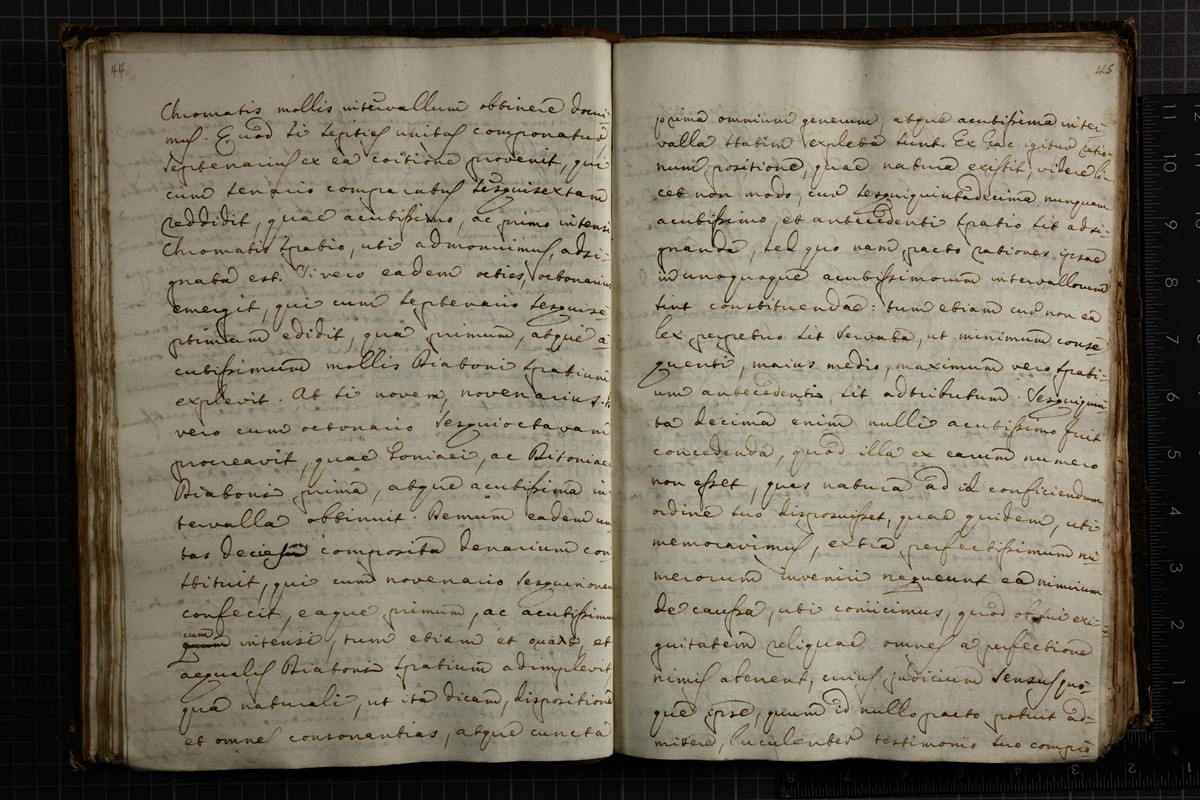 44
Chromatis mollis intervallum obtinere docui-
mus. Quod si septies unitas componatur
septenarius ex ea coitione provenit, qui
cum senario comparatus sesquisextam
reddidit, quae acutissimo, ac primo intensi
Chromatis spatio, uti admonuimus, adsi-
gnata est. Si vero eadem octies, octonarius
emergit, qui cum septenario sesquise
ptimam edidit, qua primum, atque a
cutissimum mollis Diatoni spatium
explevit. At si novem, novenarius
vero cum octonario sesquioctavam
procreavit, quae toniaei, ac Ditoniaei
Diatoni prima, atque acutissima in-
tervalla obtinuit. Demum eadem uni
tas decies composita denarium con
stituit, qui cum novenario sesquinonam
confecit, eaque primum, ac acutissimum
cum intensi, tum etiam et et
aequalis Diatoni spatium adimplevit
qua naturali, ut ita dicam, dispositione
et omnes consonantias, atque cuncta
45
prima omnium generum atque acutissima inter-
valla statim expleta sunt. Ex hac igitur ratio-
num positione, quae natura existit, videre li
cet non modo, cur sesquiquintadecima nunquam
acutissimo, et antecedenti spatio sit adsi-
gnanda, sed quo nam pacto rationes ipsae
in unaquaque acutissimorum intervallorum
sint constituendae: tum etiam cur non ea
lex perpetuo sit servata, ut minimum conse
quenti, maius medio, maximum vero spati-
um antecedenti sit adtributum. Sesquiquin
ta decima enim nulli acutissimo fuit
concedenda, quod illa ex earum numero
non esset, quas natura ad id conficiendum
ordine suo disposuisset, quae quidem, uti
memoravimus, extra perfectissimum nu
merorum inveniri nequeunt ea nimirum
de caussa, uti coniicimus, quod ob sui exi-
guitatem reliquae omnes a perfectione
nimis abeuent, cuius judicium sensus quo-
que ipse, quum id nullo pacto potuit ad-
mittere, luculenter testimonio suo compro